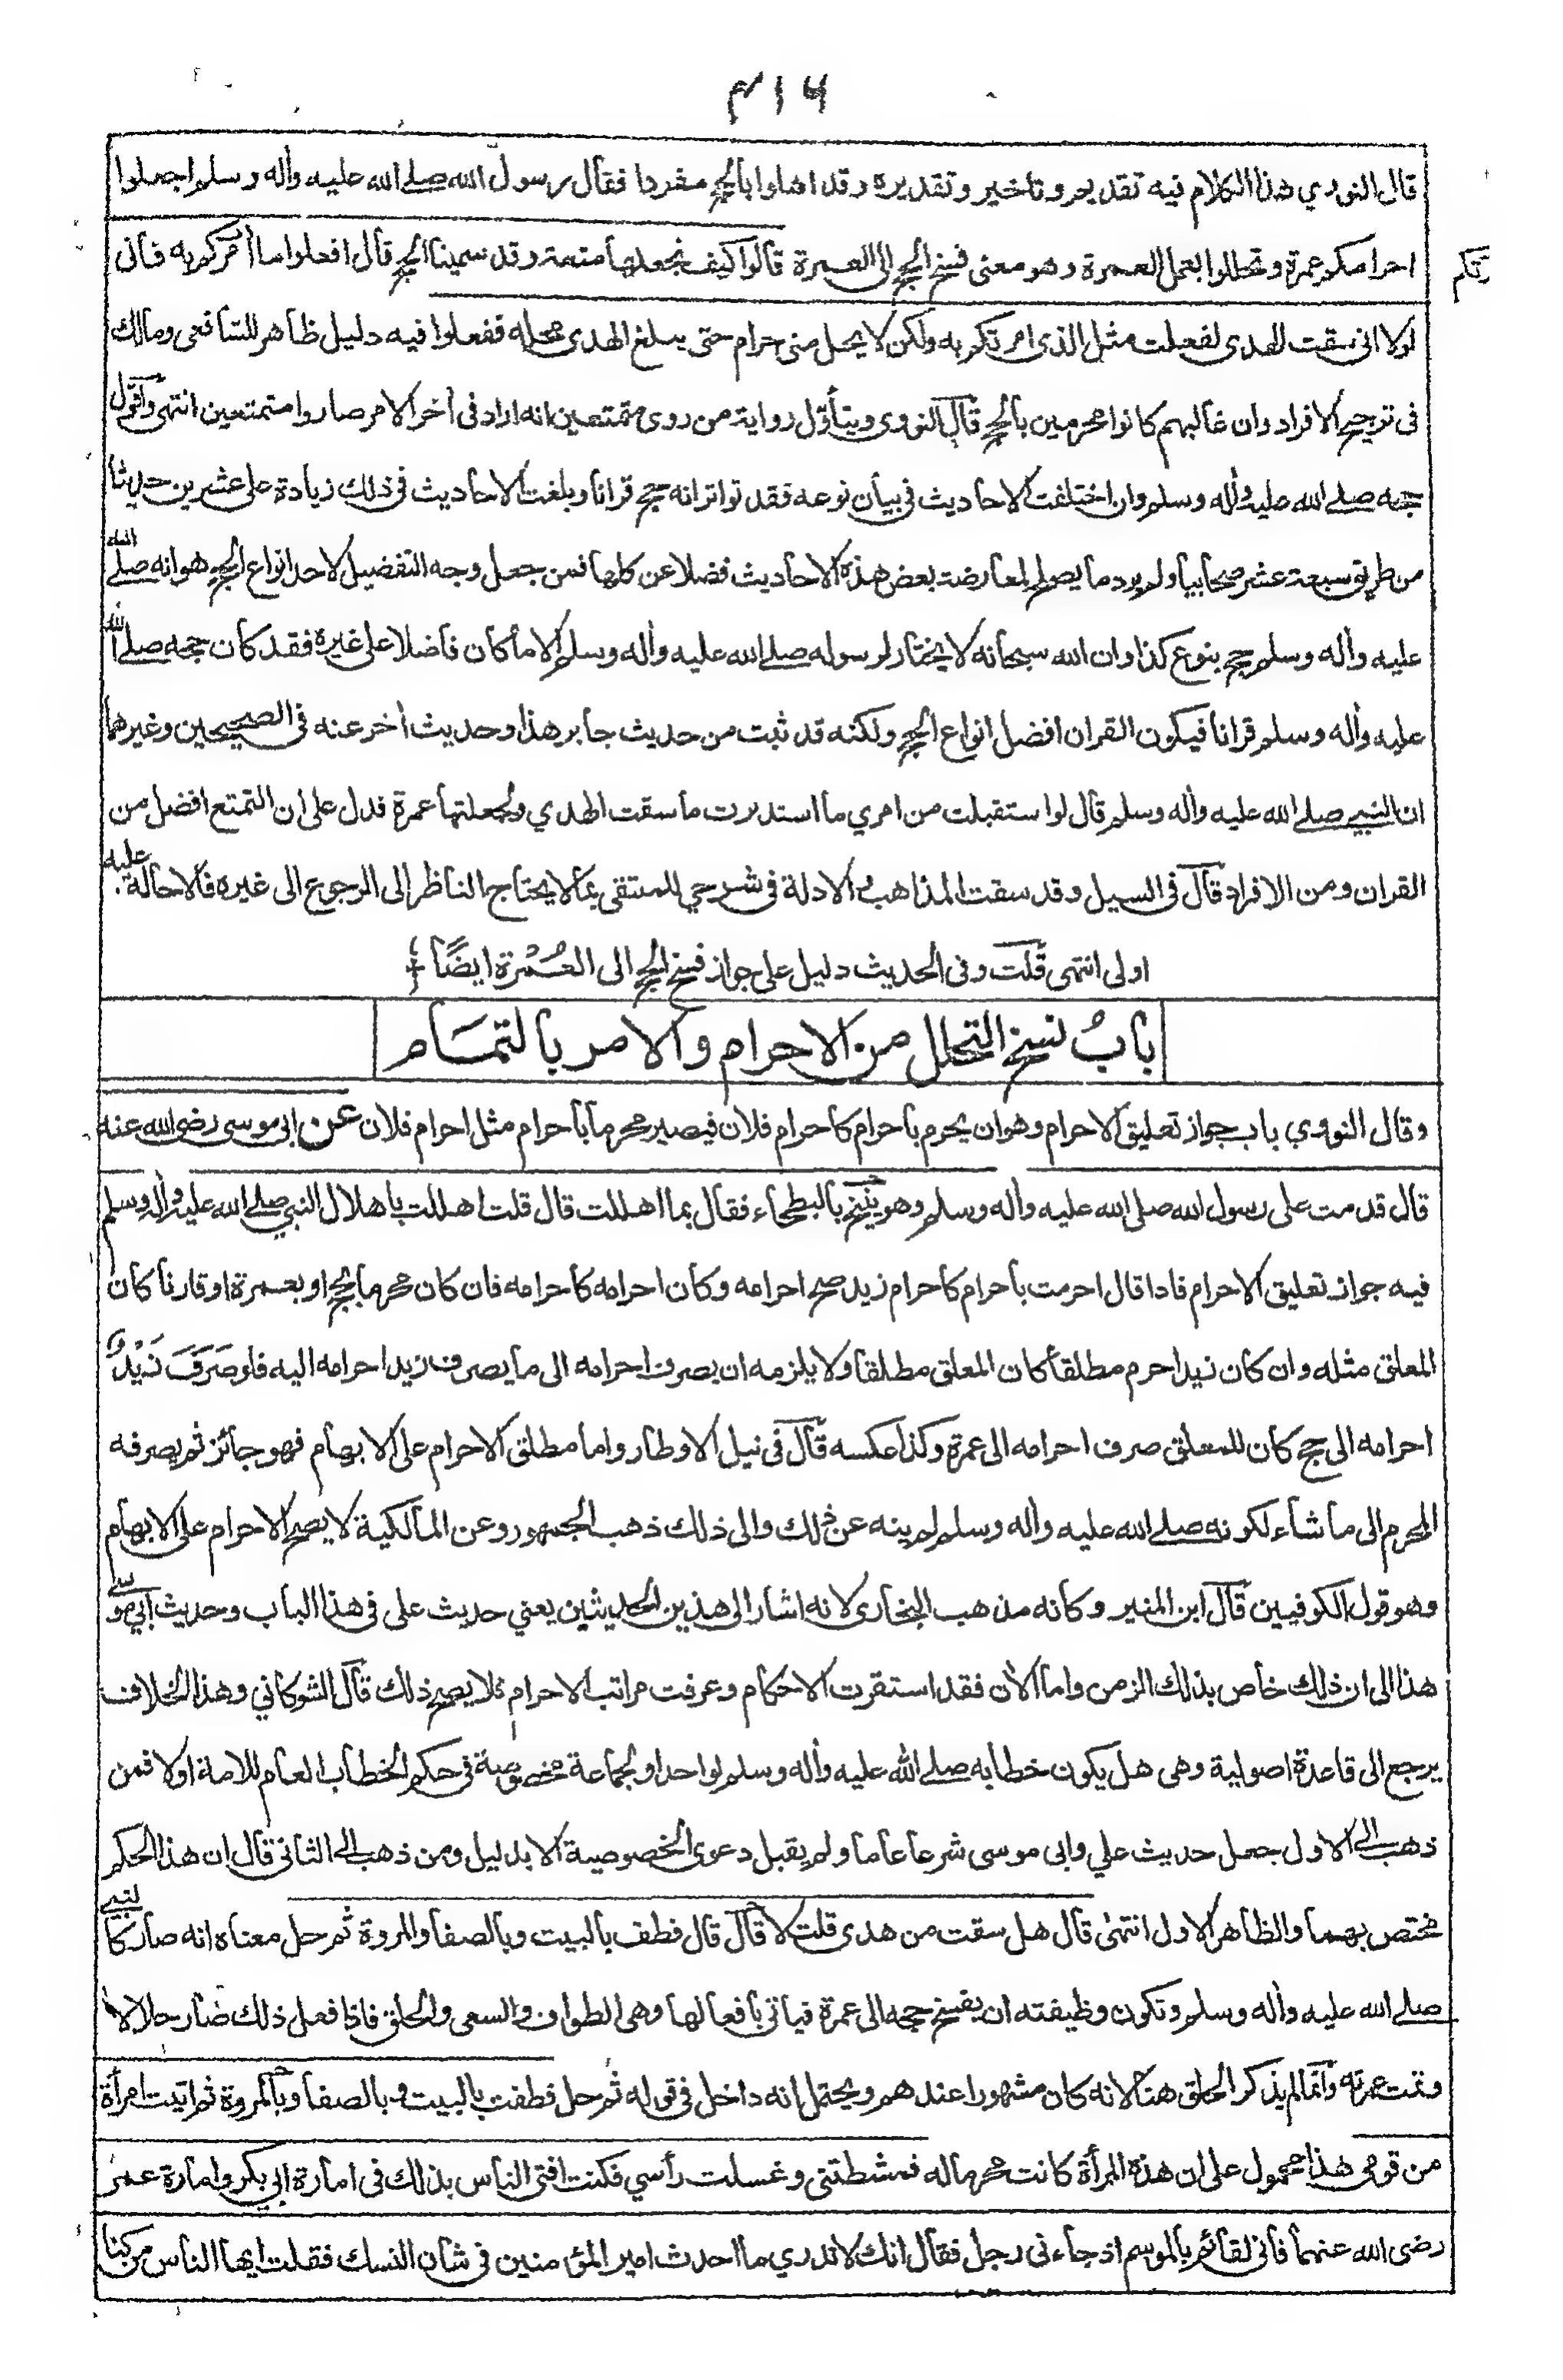 ٤١٦
قال النووي هذا الكلام فيه تقديم وتاخير وتقديره وقد اهلوا بالحج مفردا فقال رسول الله صلے الله عليه وأله وسلم اجعلوا
احرامكم عمرة وتحللوا بعمل العمرة وهو معنى فسخ الحج الى العمرة قالوا كيف نجعلها متعة وقد سمينا الحج قال افعلوا ما أمركم به فانى
تكم
لولا انى سقت الهدى لفعلت مثل الذى امرتكم به ولكن لا يحل منى حرام حتى يبلغ الهدى محله ففعلوا فيه دليل ظاهر للشافعى ومالك
فى ترجيح الافراد وان غالبهم كانوا محرمين بالحج قال النووى ويتأول رواية من روى متمتعين انه اراد فى أخر الامر صاروا متمتعين انتهى واقول
حجه صلے الله عليه وأله وسلم وان اختلفت الاحاديث فى بيان نوعه فقد تواترانه حج قرانا وبلغت الاحاديث فى ذلك زيادة على عشرين حديثا
من طريق سبعة عشر صحابيا ولم يرد ما يصلح لمعارضة بعض هذه الاحاديث فضلا عن كلها فمن جعل وجه التفضيل لاحد انواع الحج هو انه صلے الله
عليه وأله وسلم حج بنوع كذا وان الله سبحانه لا يختار لرسوله صلے الله عليه وأله وسلم الا ما كان فاضلا على غيره فقد كان حجه صلے الله
عليه وأله وسلم قرانا فيكون القران افضل انواع الحج ولكنه قد ثبت من حديث جابر هذا وحديث أخر عنه فى الصحيحين وغيرهما
ان النبي صلے الله عليه وأله وسلم قال لو استقبلت من امري ما استدبرت ما سقت الهدي ولجعلتها عمرة فدل على ان التمتع افضل من
القران ومن الافراد قال فى السيل وقد سقت المذاهب والادلة فى شرحي للمنتقى بما لا يحتاج الناظر الى الرجوع الى غيره فالاحالة عليه
اولى انتهى قلت وفى الحديث دليل على جواز فسخ الحج الى العُمْرة ايضًا
بابُ نسخ التحلل من الاحرام والامر بالتمام
وقال النووي باب جواز تعليق الاحرام وهو ان يحرم باحرام كاحرام فلان فيصير محرما باحرام مثل احرام فلان عن ابى موسى رضى الله عنه
قال قدمت على رسول الله صلى الله عليه وأله وسلم وهو منيخ بالبطحاء فقال بما اهللت قال قلت اهللت باهلال النبي صلے الله عليه وأله وسلم
فيه جواز تعليق الاحرام فاذا قال احرمت باحرام كاحرام زيد صح احرامه وكان احرامه كاحرامه فان كان محرما بحج او بعمرة او قارنا كان
المعلق مثله وان كان زيد احرم مطلقا كان المعلق مطلقا ولا يلزمه ان يصرف احرامه الى ما يصرف زيد احرامه اليه فلو صَرَفَ زَيْدٌ
احرامه الى حج كان للمعلق صرف احرامه الى عمرة وكذا عكسه قال فى نيل الاوطار واما مطلق الاحرام على الابهام فهو جائز ثم يصرفه
المحرم الى ما شاء لكونه صلے الله عليه وأله وسلم لم ينه عن ذلك والى ذلك ذهب الجمهور وعن المالكية لا يصح الاحرام على الابهام
وهو قول الكوفيين قال ابن المنير وكانه مذهب البخارى لانه اشار الى هذين الحديثين يعني حديث على فى هذا الباب وحديث ابي موسے
هذا الى ان ذلك خاص بذلك الزمن واما الأن فقد استقرت الاحكام وعرفت مراتب الاحرام فلا يصح ذلك قال الشوكاني وهذا الخلاف
يرجع الى قاعدة اصولية وهى هل يكون خطابه صلے الله عليه وأله وسلم لواحد او لجماعة مخصوصة فى حكم الخطاب العام للامة اولا فمن
ذهب الے الاول جعل حديث علي وابى موسى شرعا عاما ولم يقبل دعوى الخصوصية الا بدليل ومن ذهب الے الثانى قال ان هذا الحكم
مختص بهما والظاهر الاول انتهى قال هل سقت من هدى قلت لا قال قال فطف بالبيت وبالصفا والمروة ثم حل معناه انه صار كالنبي
صلے الله عليه وأله وسلم وتكون وظيفته ان يفسخ حجه الى عمرة فياتى بافعالها وهى الطواف والسعى والحلق فاذا فعل ذلك صار حلالا
وتمت عمرته وانما لم يذكر الحلق هنا لانه كان مشهورا عندهم ويحتمل انه داخل فى قوله ثم حل فطفت بالبيت وبالصفا وبالمروة ثم اتيت امرأة
من قومى هذا محمول على ان هذه المرأة كانت محرما له فمشطتنى وغسلت رأسي فكنت افتى الناس بذلك فى امارة ابي بكر وامارة عمر
رضى الله عنهما فانى لقائم بالموسم اذ جاءنى رجل فقال انك لا تدري ما احدث امير المؤمنين فى شان النسك فقلت ايها الناس من كنا